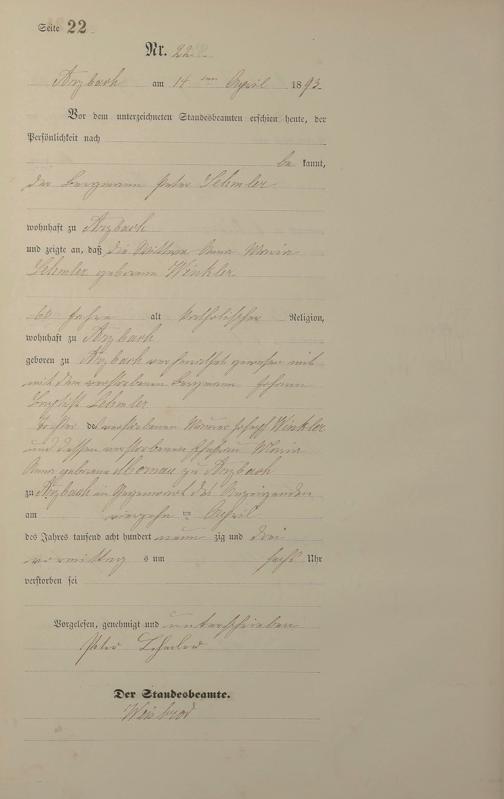 Seite 22
Nr. 22.
Arzbach am 14 ten April 1893.
Vor dem unterzeichneten Standesbeamten erschien heute, der
Persönlichkeit nach
be kannt,
der Bergmann Peter
wohnhaft zu Arzbach
und zeigte an, daß die Wittwe Anna Maria
geborene Winkler
60 Jahre alt katholischer Religion,
wohnhaft zu Arzbach
geboren zu Arzbach verheirathet gewesen mit
mit dem verstorbenen Bergmann Johann
Tochter des verstorbenen Maurer Joseph Winkler
und dessen verstorbenen Ehefrau Maria
Anna geborene zu Arzbach
zu Arzbach in Gegenwart des Anzeigenden
am vierzehn ten April
des Jahres tausend acht hundert neun zig und drei
vormittag s um sechs Uhr
verstorben sei
Vorgelesen, genehmigt und unterschrieben
Peter
Der Standesbeamte.